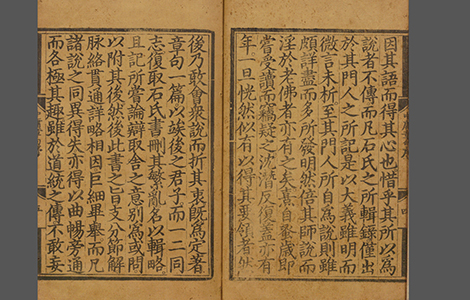 因其語而得其心也惜乎其所以為
說者不傳而凡石氏之所輯錄僅出
於其門人之所記是以大義雖明而
微言未析至其門人所自為說則雖
頗詳盡而多所發明然倍其師說而
淫於老佛者亦有之矣熹自蚤歲即
嘗受讀而竊疑之沈潛反復蓋亦有
年一旦恍然似有以得其要領者然
後乃敢會衆說而折其衷既為定著
章句一篇以竢後之君子而一二同
志復取石氏書刪其繁亂名以輯略
且記所嘗論辯取舍之意別為或問
以附其後然後此書之旨支分節解
脉絡貫通詳略相因巨細畢舉而凡
諸說之同異得失亦得以曲暢旁通
而各極其趣雖於道統之傳不敢妄